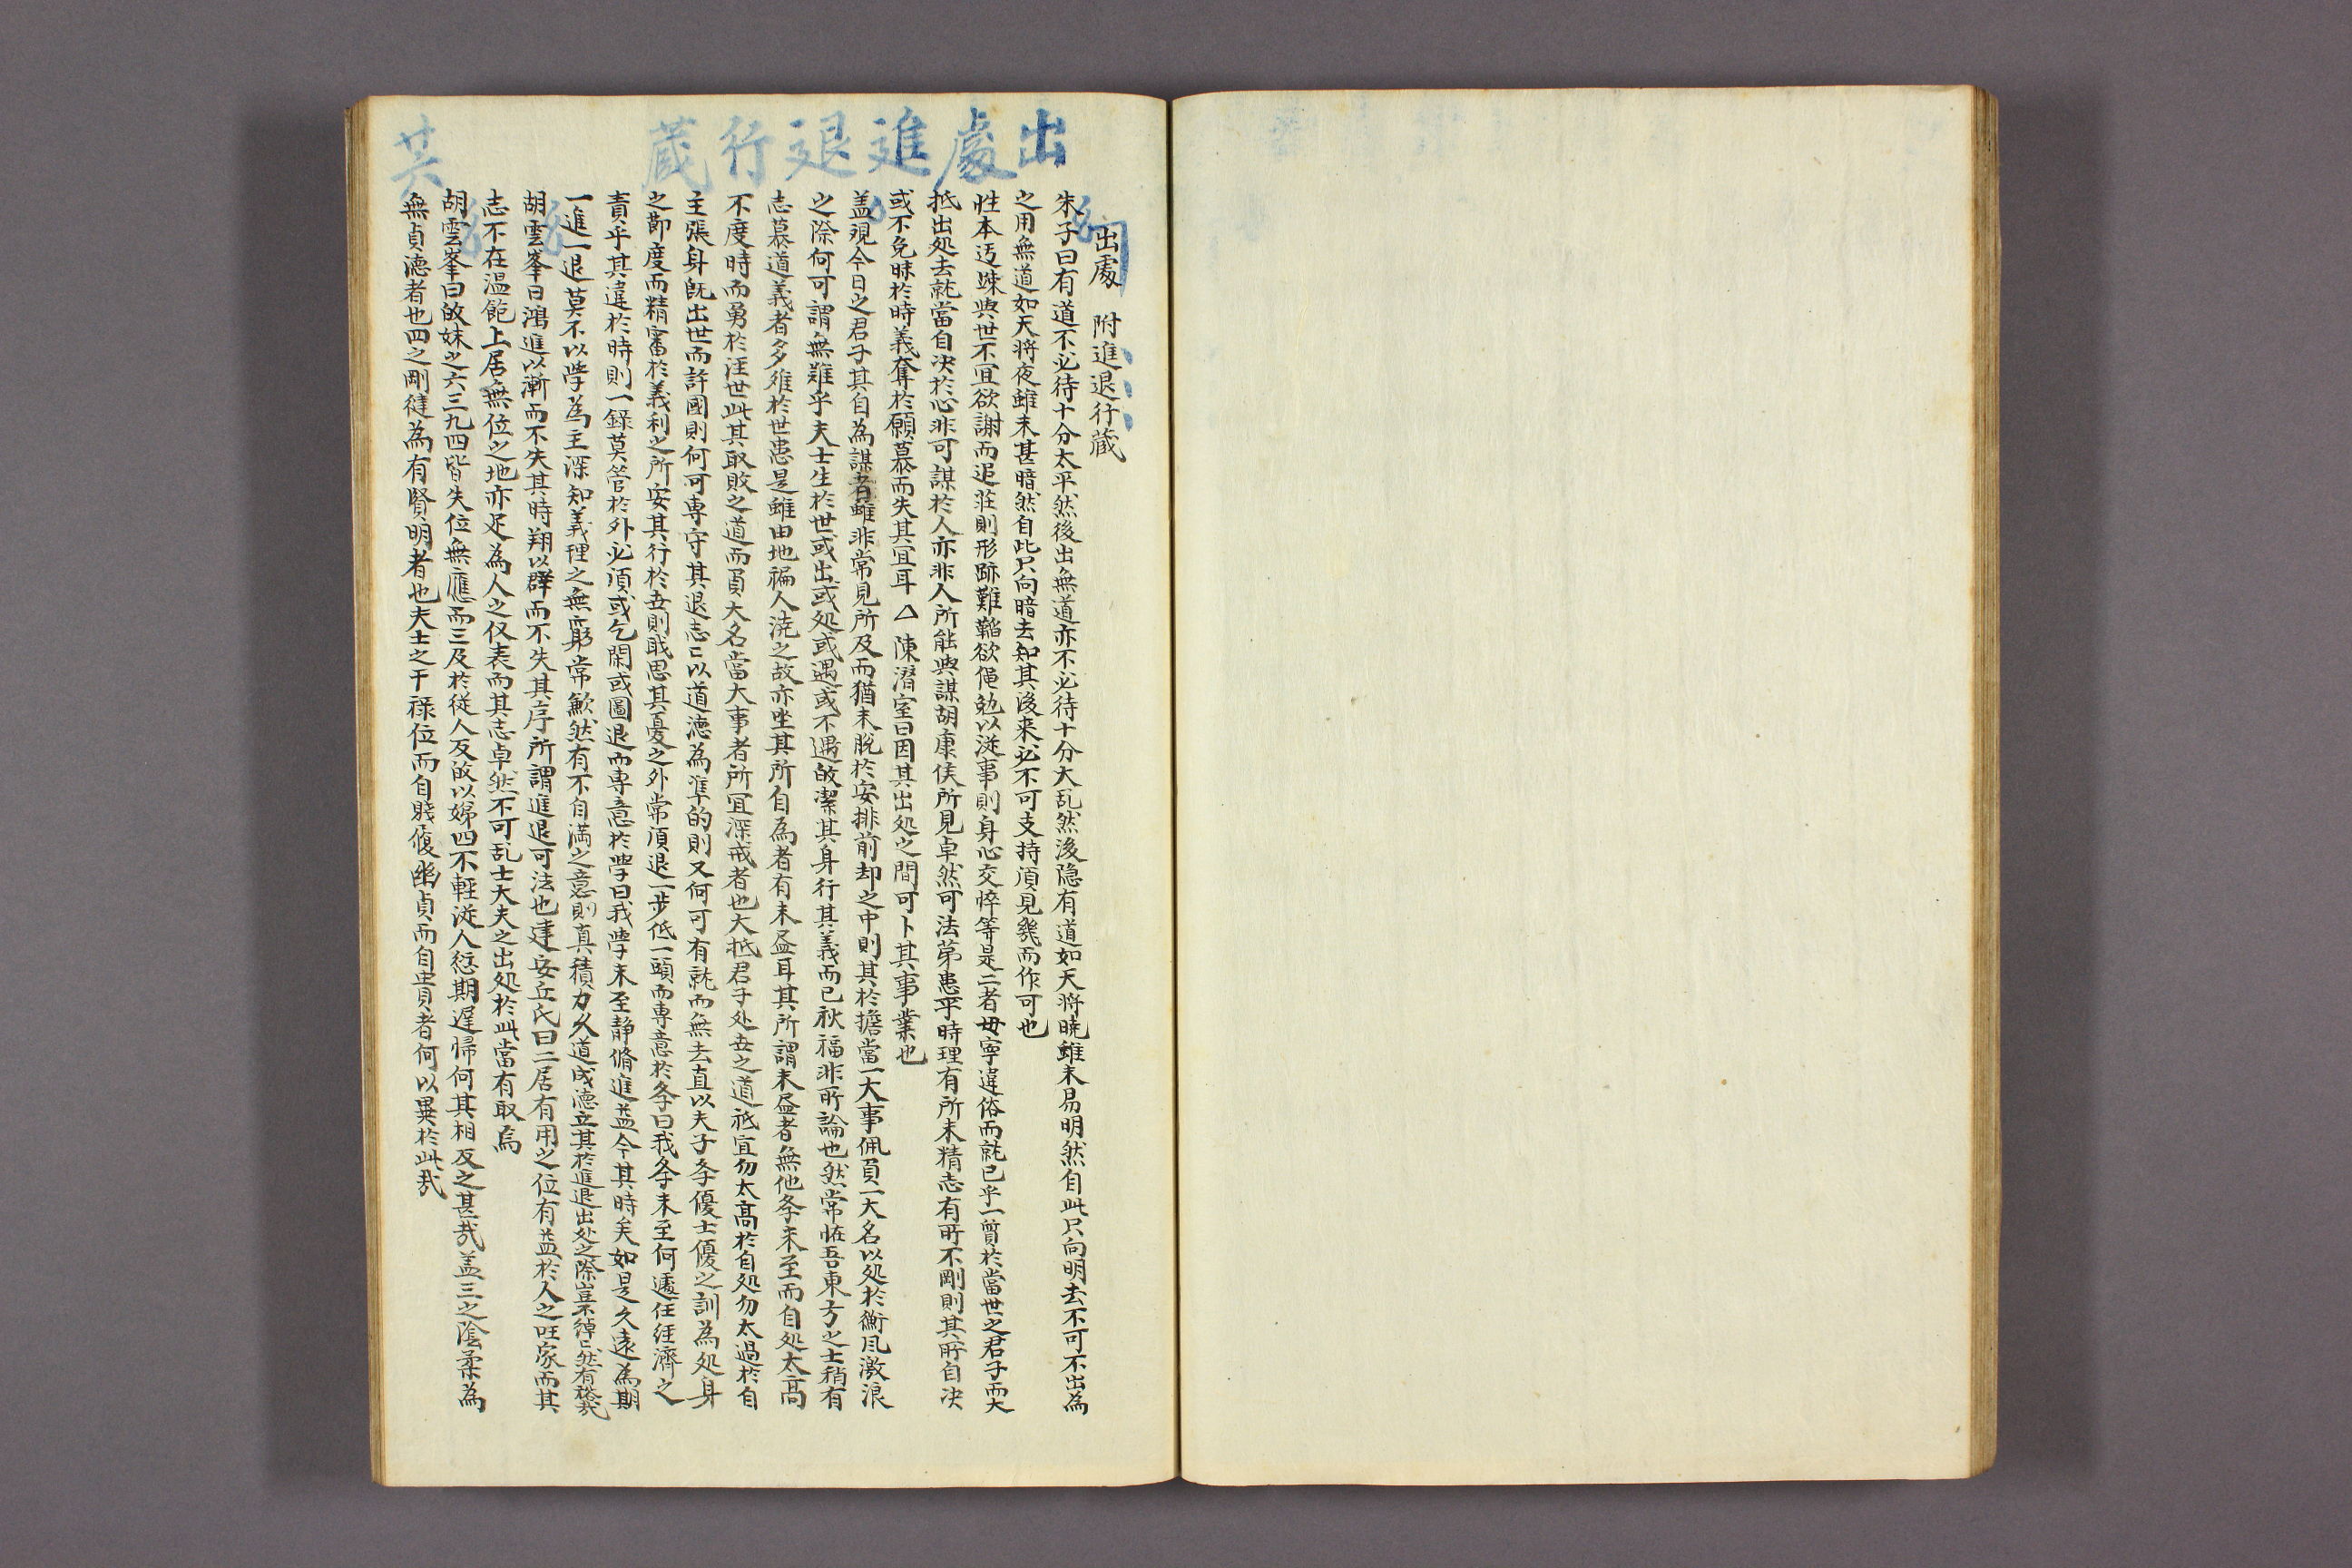 出處進退行蔵
其
出處 附進退行蔵
朱子曰有道不必待十分太平然後出無道亦不必待十分大乱然後隐有道如天将曉雖未易明然自此只向明去不可不出為
之用無道如天将夜雖未甚暗然自此只向暗去知其後来必不可支持須見幾而作可也
性本迃踈與世不宜欲謝而退莊則形跡難韜欲僶勉以従事則身心交悴等是二者毋寧違俗而就已乎一質於當世之君子而大
抵出処去就當自决於心非可謀於人亦非人所能與謀胡康侯所見卓然可法第患乎時理有所未精志有所不剛則其所自决
或不免昧於時義奪於願慕而失其宜耳 △ 陳潜室曰因其出処之間可卜其事業也
盖現今日之君子其自為謀者雖非常見所及而猶未脫於安排前却之中則其於擔當一大事佩負一大名以処於衝凬激浪
之際何可謂無難乎夫士生於世或出或処或遇或不遇㱕潔其身行其義而已秋福非所論也然常怪吾東方之士稍有
志慕道義者多雉於世患是雖由地褊人澆之故亦坐其所自為者有未盡耳其所謂未盡者無他斈未至而自処太高
不度時而勇於汪世此其取敗之道而負大名當大事者所宜深戒者也大抵君子処世之道祗宜勿太高於自処勿太過於自
主張身既出世而許國則何可専守其退志=以道德為準的則又何可有就而無去直以夫子斈優士優之訓為処身
之節度而精審於義利之所安其行於世則戝思其憂之外常須退一步低一頭而專意於斈曰我斈未至何遽任経濟之
責乎其違於時則一錄莫管於外必須或乞閑或圖退而專意於學曰我學未至静脩進益今其時矣如是久遠為期
一進一退莫不以學為主深知義理之無窮常歉然有不自満之意則真積力久道成德立其於進退出処之際豈不綽=然有裕哉
胡雲峯曰鴻進以漸而不失其時翔以群而不失其序所謂進退可法也建安丘氏曰二居有用之位有益於人之旺家而其
志不在温飽上居無位之地亦足為人之仪表而其志卓然不可乱士大夫之出処於此當有取焉
胡雲峯曰㱕妹之六三九四皆失位無應而三及於従人反㱕以娣四不輕従人愆期遅帰何其相反之甚哉盖三之陰柔為
無貞德者也四之剛徤為有賢明者也夫士之干禄位而自賤履幽貞而自貴者何以異於此哉